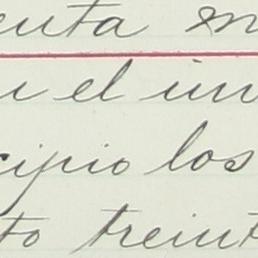 enta m
u el un
cipio los
to treint